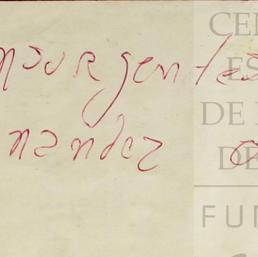 nsurgentes
nandez
CE
ES
DE
DE
FUN